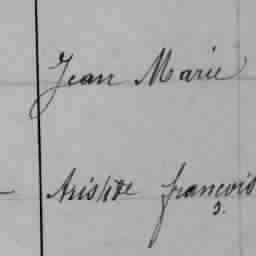 Jean Marie
Aristide françois